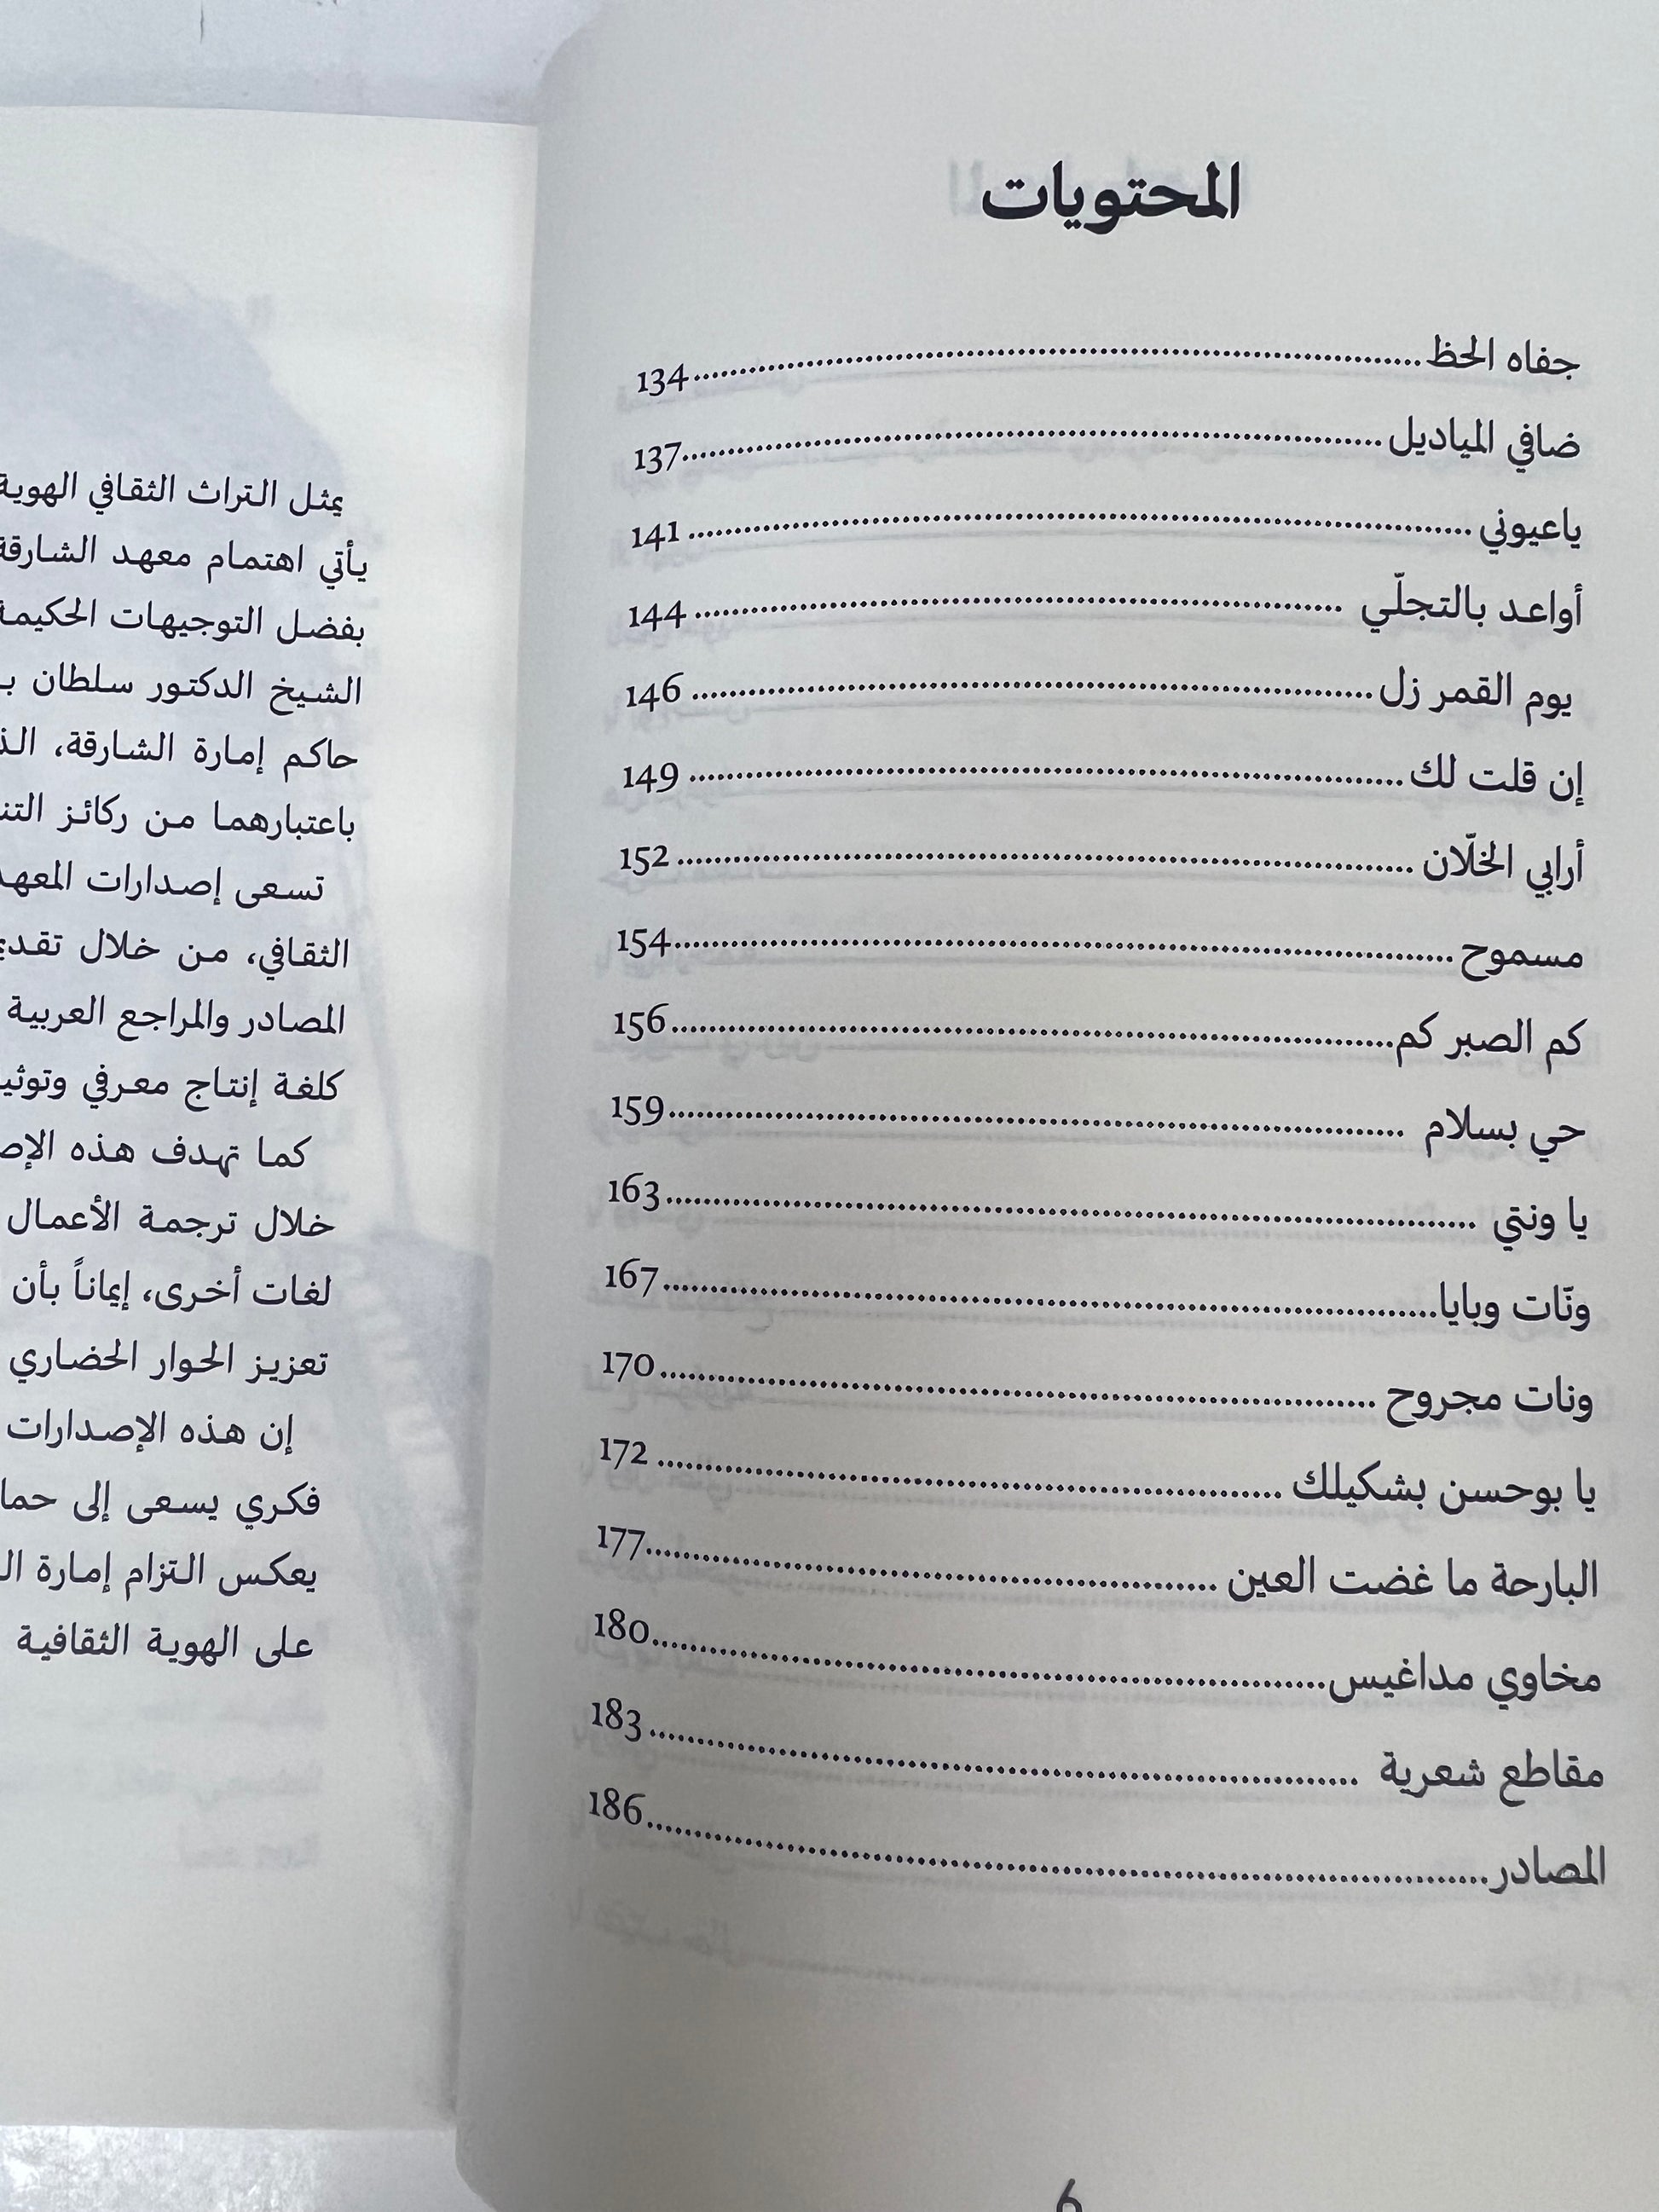 المحتويات
جفاه الحظ 134
ضافي المياديل 137
ياعيوني 141
أواعد بالتجلّي 144
يوم القمر زل 146
إن قلت لك 149
أرابي الخلّان 152
مسموح 154
كم الصبر كم 156
حي بسلام 159
يا ونتي 163
ونّات وبايا 167
ونات مجروح 170
يا بوحسن بشكيلك 172
البارحة ما غضت العين 177
مخاوي مداغيس 180
مقاطع شعرية 183
المصادر 186
6
يمثل التراث الثقافي الهوية
يأتي اهتمام معهد الشارقة
بفضل التوجيهات الحكيمة
الشيخ الدكتور سلطان
حاكم إمارة الشارقة،
باعتبارهما من ركائز
تسعى إصدارات
الثقافي، من خلال
المصادر والمراجع العربية
كلغة إنتاج معرفي
كما تهدف هذه
خلال ترجمة الأعمال
لغات أخرى، إيماناً بأن
تعزيز الحوار الحضاري
إن هذه الإصدارات
فكري يسعى إلى
يعكس التزام إمارة
على الهوية الثقافية